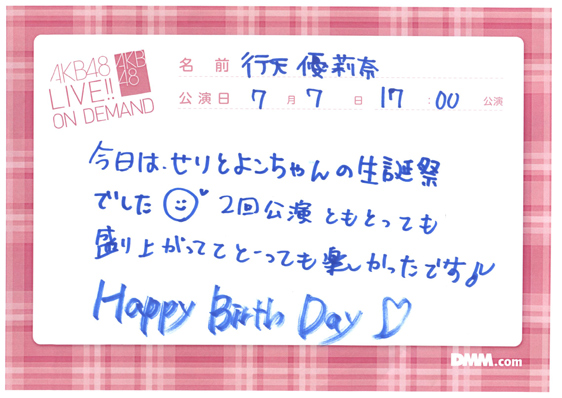 AKB48
LIVE!!
ON DEMAND
AKB
48
名 前 行天 優莉奈
公演日 7月7日 17:00 公演
今日は、せりとよこちゃんの生誕祭
でした 2回公演ともとっても
盛り上がっててとーっても楽しかったです♪
Happy Birth Day ♡
DMM.com